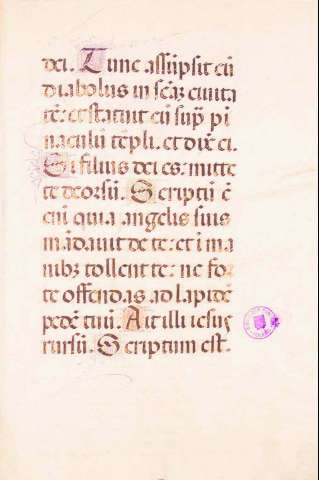 dei. Tunc assūpsit eū
diabolus in scāȝ ciuita
tē: et statuit eū sup̄ pi
naculū tēpli. et dix̄ ei.
Si filius dei es: mitte
te deorsū. Scriptū ē
enī quia angelis suis
mādauit de te: et i ma
nibȝ tollent te: ne for
te offendas ad lapidē
pedē tuū. Ait illi iesus
rursū. Scriptum est.